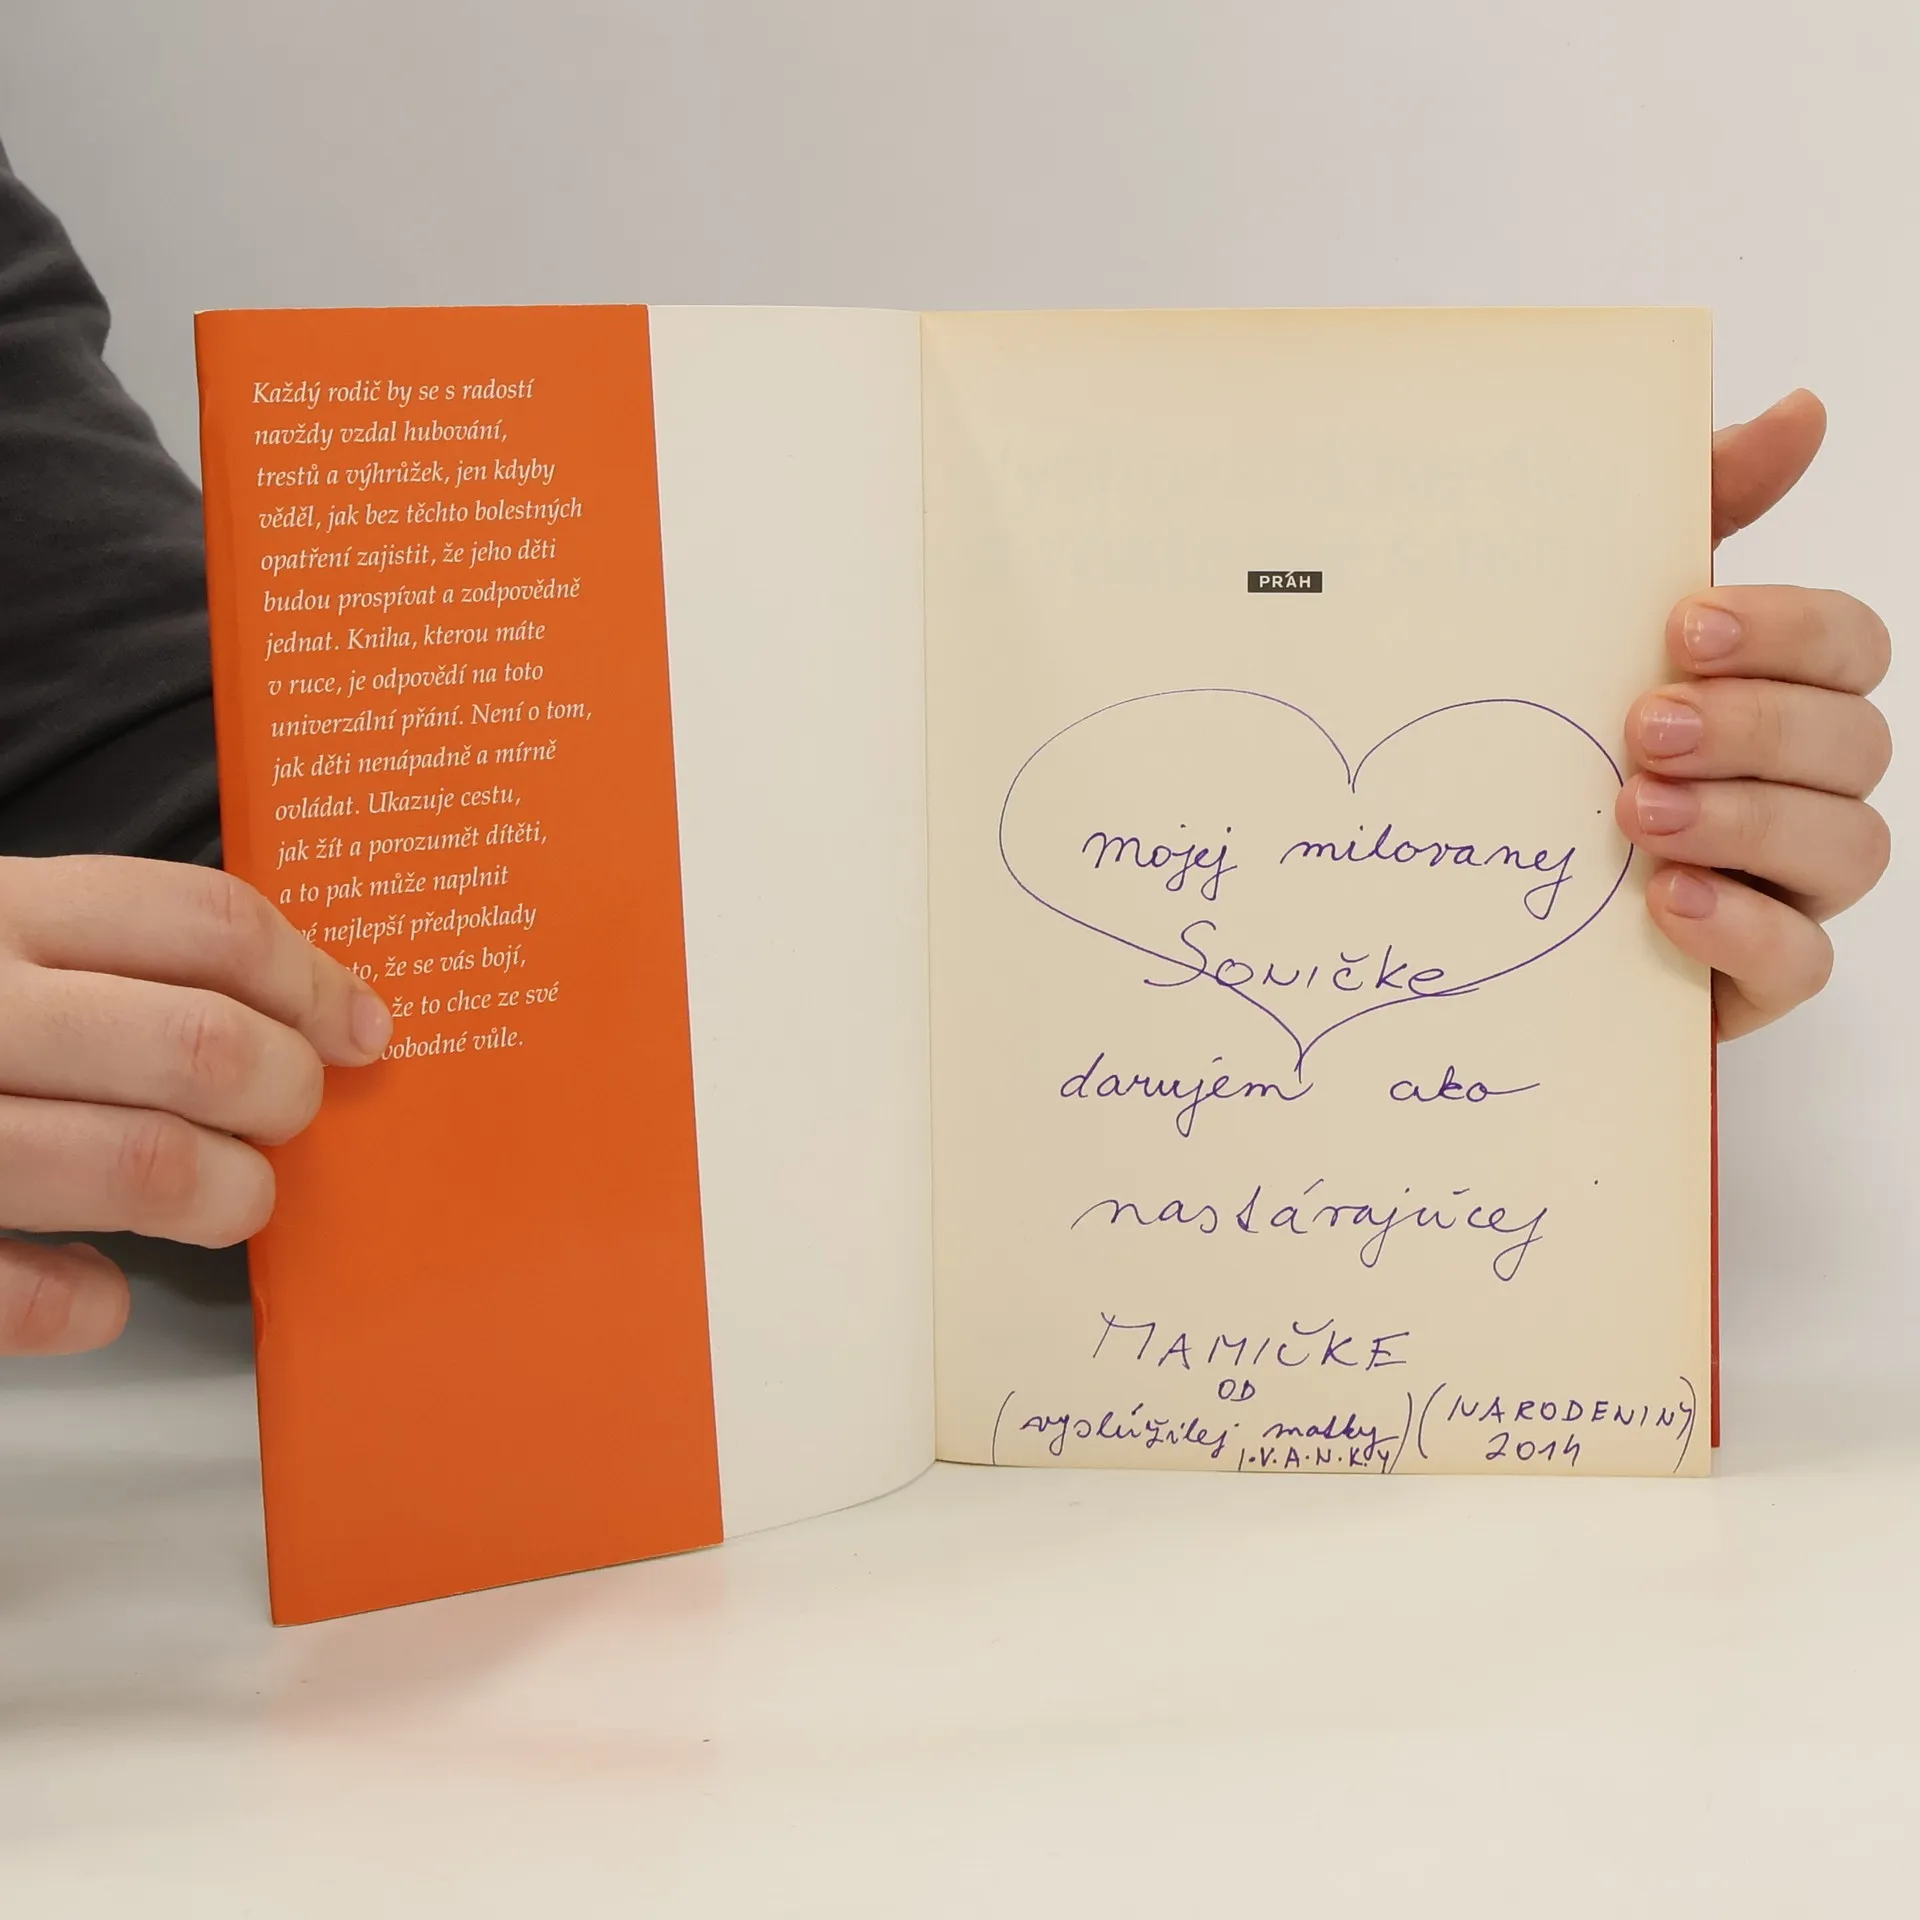 Každý rodič by se s radostí
navždy vzdal hubování,
trestů a výhrůžek, jen kdyby
věděl, jak bez těchto bolestných
opatření zajistit, že jeho děti
budou prospívat a zodpovědně
jednat. Kniha, kterou máte
v ruce, je odpovědí na toto
univerzální přání. Není o tom,
jak děti nenápadně a mírně
ovládat. Ukazuje cestu,
jak žít a porozumět dítěti,
a to pak může naplnit
nejlepší předpoklady
že se vás bojí,
že to chce ze své
vobodné vůle.
PRÁH
mojej milovanej
Soničke
darujem ako
nastárajúcej
MAMIČKE
OD
(vyslúžilej matky
I.V.A.N.K.Y)
(NARODENINY
2014)